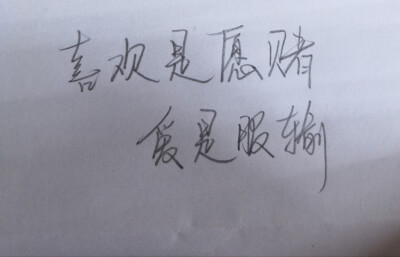 喜欢是愿赌
爱是服输